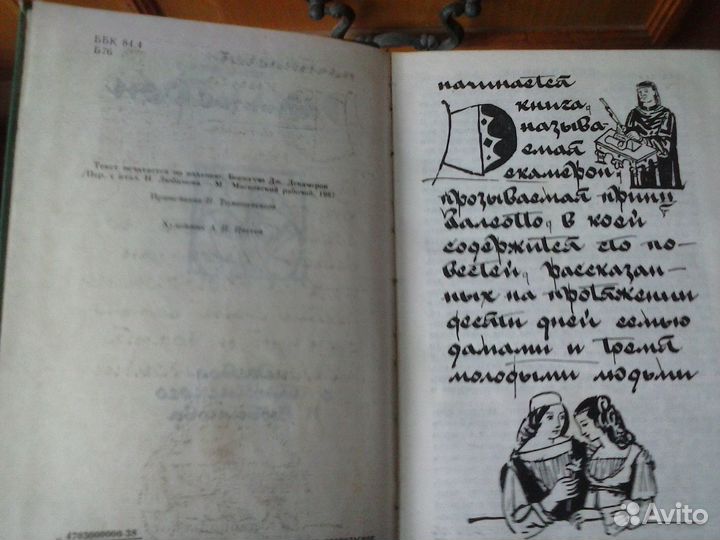 ББК 84.4
Б76
Текст печатается по изданию: Боккаччо Дж. Декамерон
/Пер. с итал. Н. Любимова. — М.: Московский рабочий, 198
Примечания Н. Томашевского
Художник А. И. Цветов
4703000000-38
начинается
книга,
называ-
емая
Декамерон,
прозываемая принц
Галеотто, в коей
содержится сто по-
вестей, рассказан-
ных на протяжении
десяти дней семью
дамами и тремя
молодыми людьми
Avito